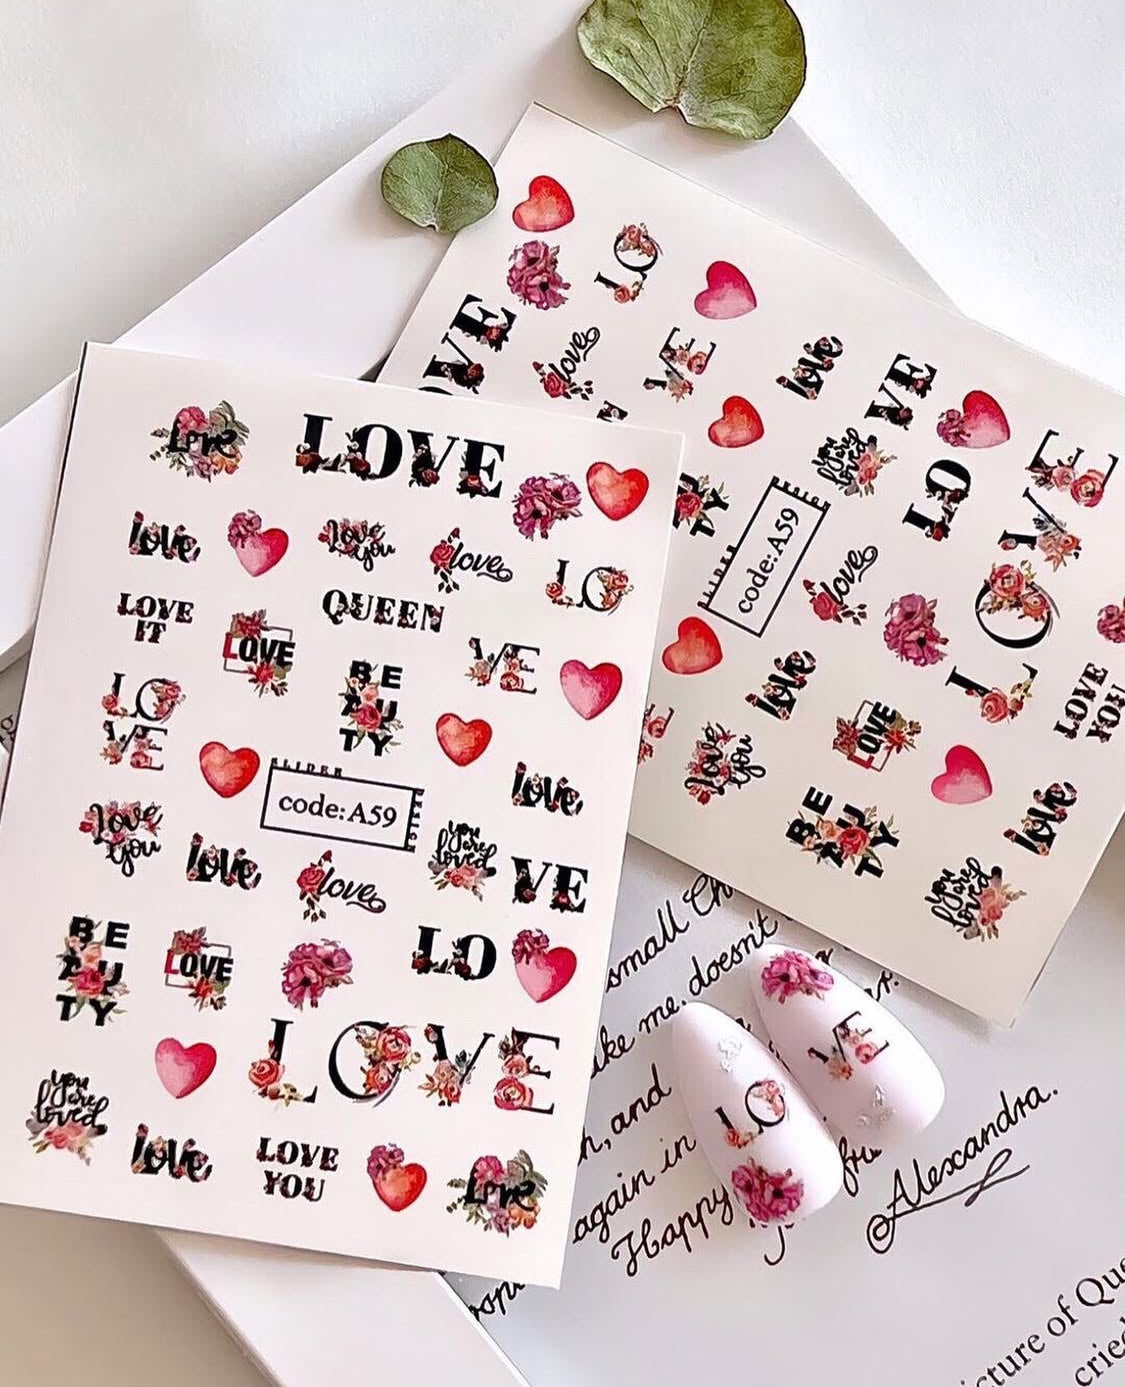 Love
LOVE
love
Love you
love
LO
LOVE
IT
LOVE
QUEEN
VE
LO
VE
BE
AU
TY
SLIDER
code:A59
DESIGN
love
Love
you
love
love
you
are
loved
VE
BE
AU
TY
LOVE
LO
LOVE
you
are
loved
love
LOVE
YOU
Love
LO
OVE
love
VE
love
VE
you
are
loved
LO
VE
TY
SLIDER
code:A59
love
LO
love
LOVE
LOVE
YOU
Love
you
BE
AU
TY
love
you
are
loved
small
me, doesn't
and
again in
Happy
Alexandra.
LO
VE
picture of
cried